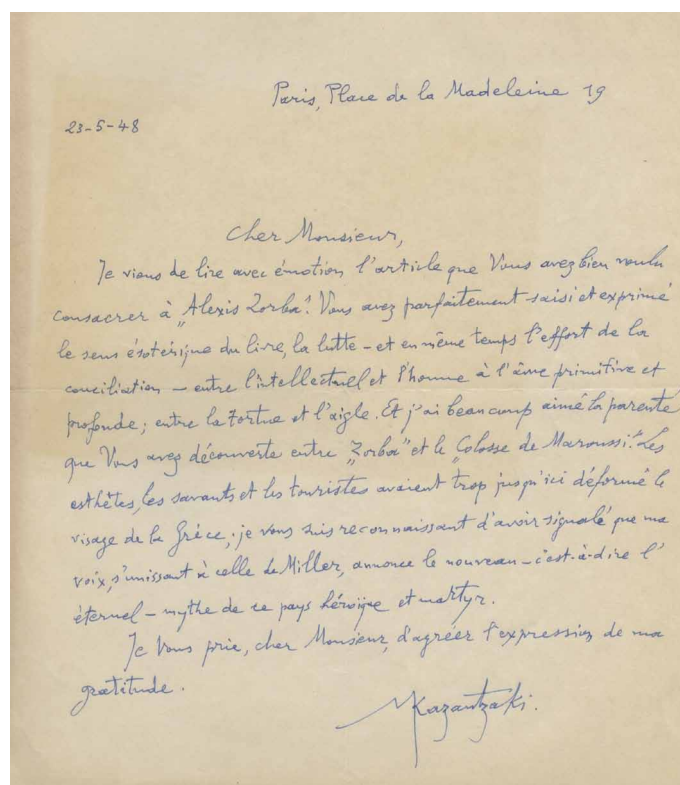 Paris, Place de la Madeleine 19
23-5-48
Cher Monsieur,
Je viens de lire avec émotion l'article que Vous avez bien voulu
consacrer à „Alexis Zorba". Vous avez parfaitement saisi et exprimé
le sens ésotérique du livre, la lutte – et en même temps l'effort de la
conciliation – entre l'intellectuel et l'homme à l'âme primitive et
profonde; entre la tortue et l'aigle. Et j'ai beaucoup aimé la parenté
que Vous avez découverte entre „Zorba" et le „Colosse de Maroussi". Les
esthètes, les savants et les touristes avaient trop jusqu'ici déformé le
visage de la Grèce; je vous suis reconnaissant d'avoir signalé que ma
voix, s'unissant à celle de Miller, annonce le nouveau – c'est-à-dire l'
éternel – mythe de ce pays héroïque et martyr.
Je Vous prie, cher Monsieur, d'agréer l'expression de ma
gratitude.
NKazantzaki.